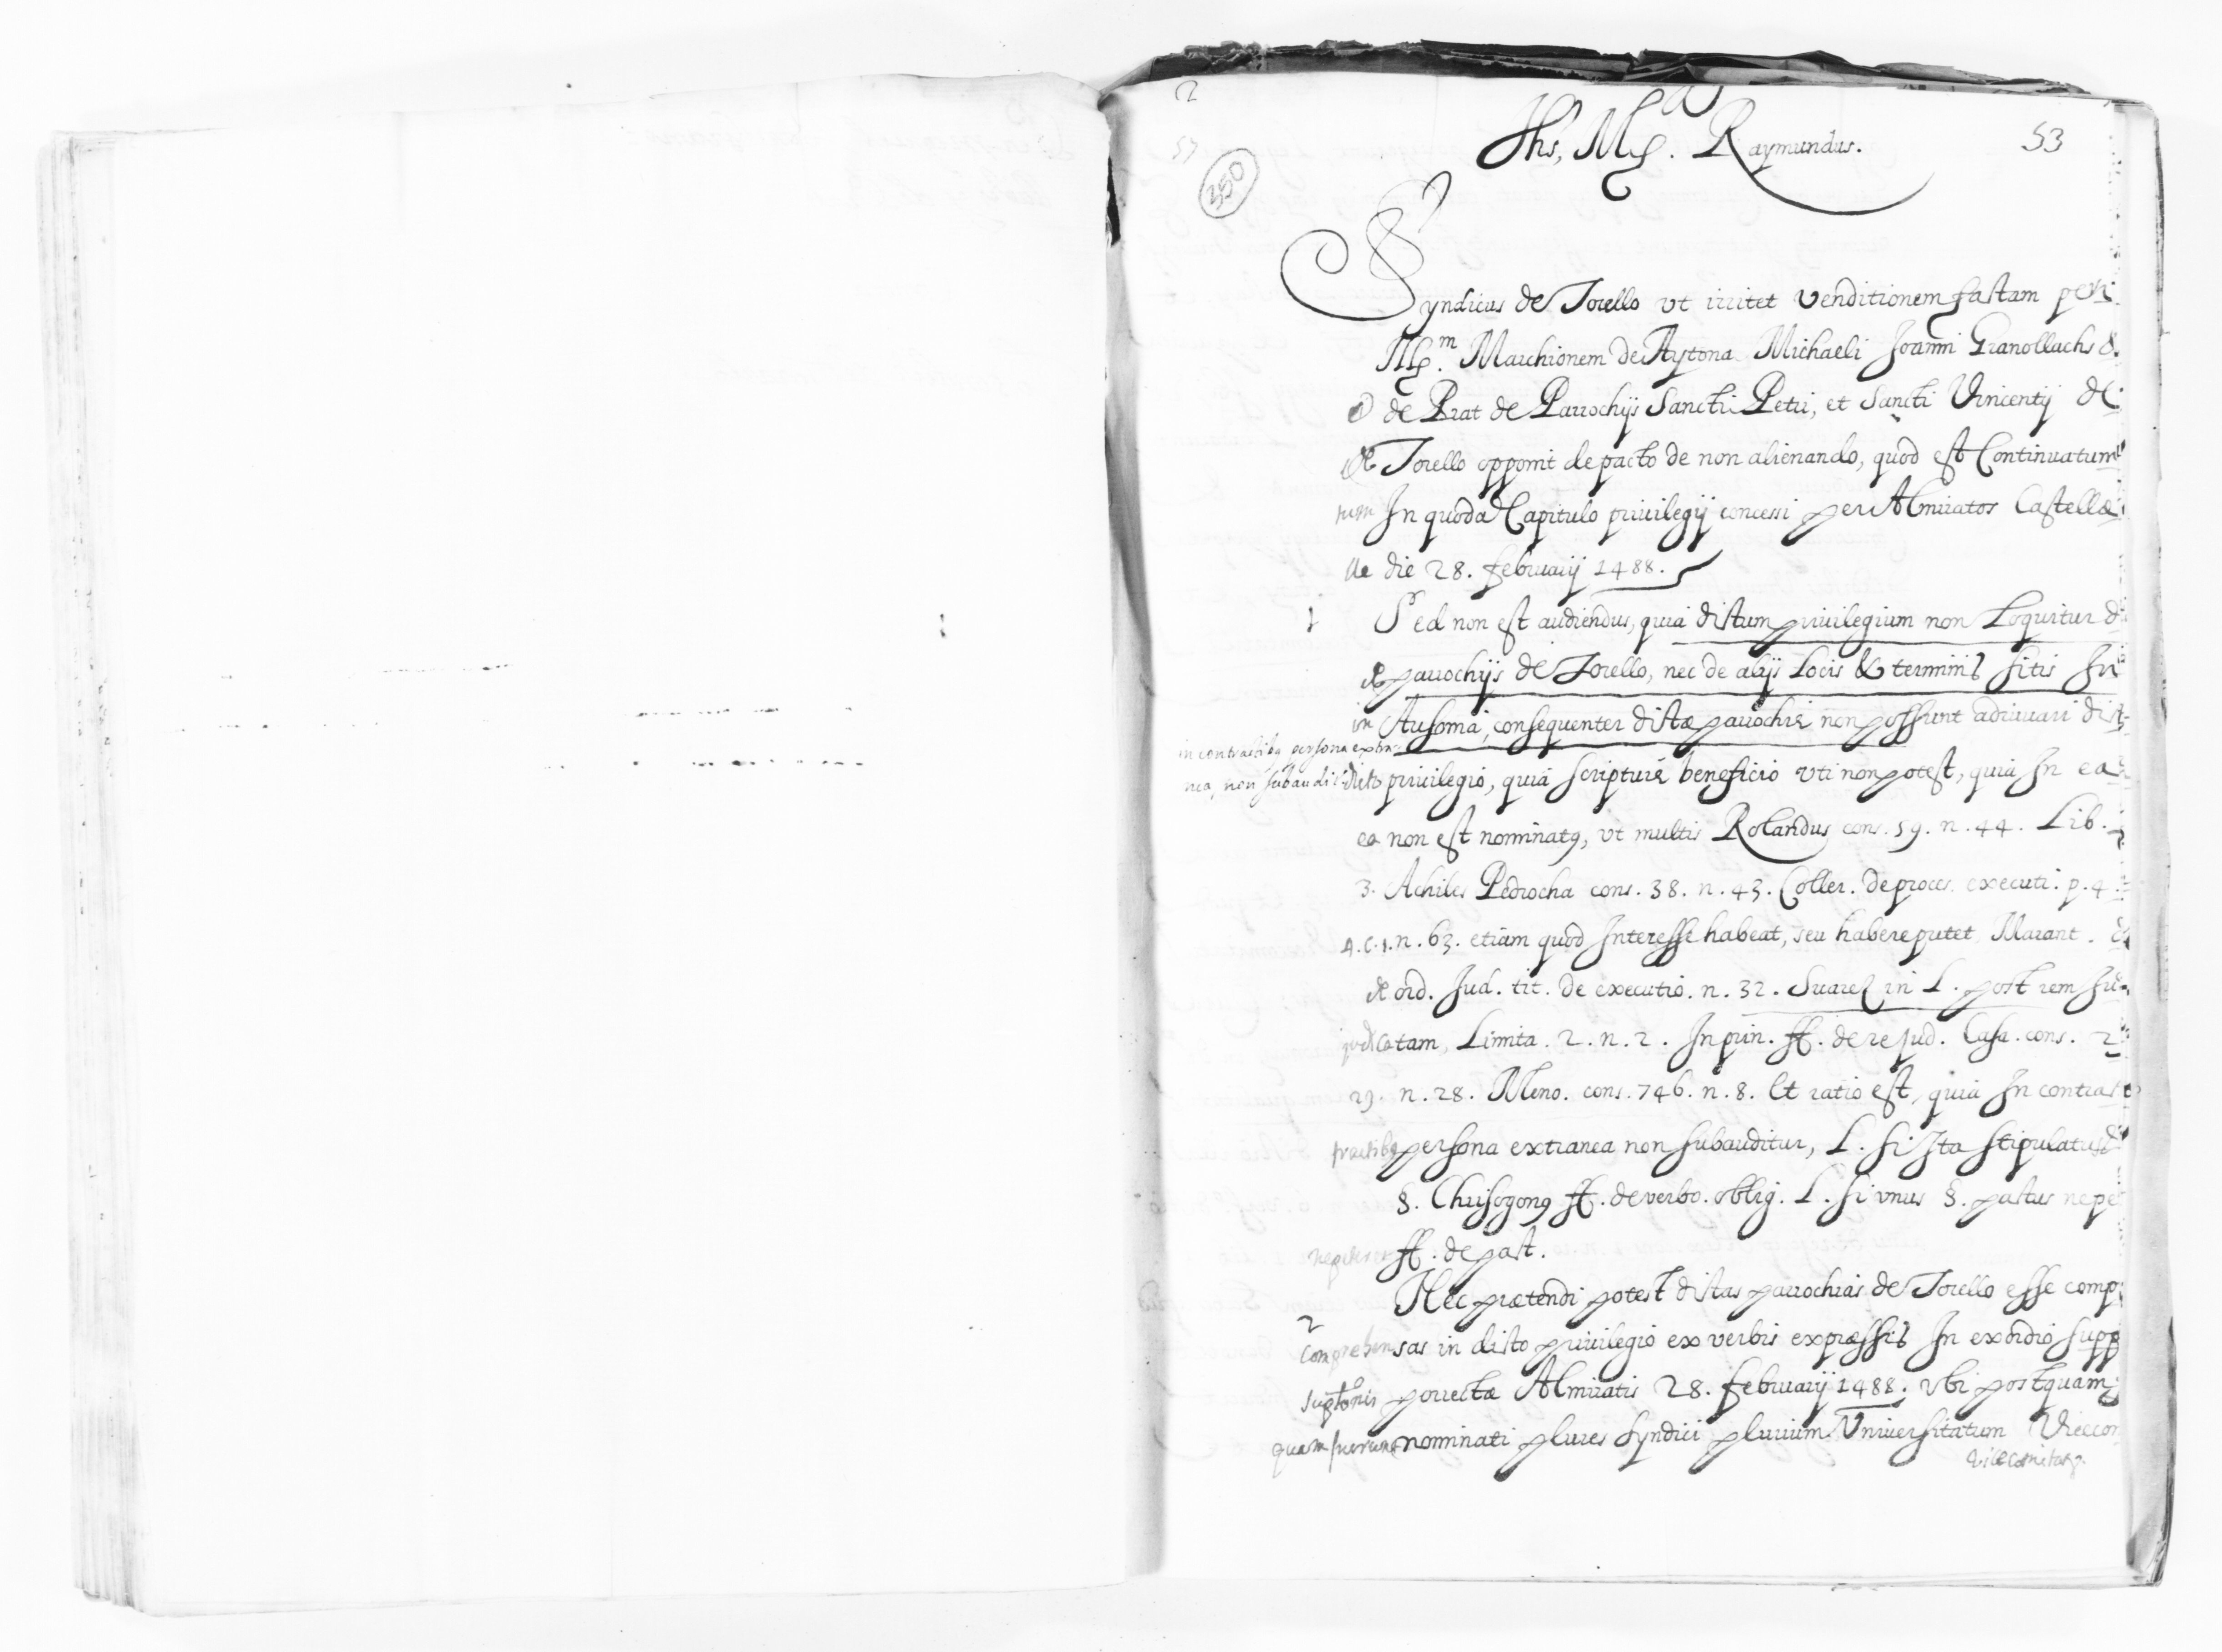 2
53
57
350
Jhs, Mª. Raymundus.
Syndicus de Torello vt irritet venditionem factam per
Illm. Marchionem de Aytona Michaeli Joanni Granollachs &
de Prat de Parrochijs Sancti Petri, et Sancti Vincentij de
de Torello opponit de pacto de non alienando, quod est Continuatum
tum In quoda Capitulo priuilegij concessi per Almiratos Castellæ
llæ die 28. februarij 1488.
1 Sed non est audiendus, quia dictum priuilegium non Loquitur d
de parrochijs de Torello, nec de alijs Locis & terminis sitis In
in Ausoma, consequenter dictæ parrochiæ non possunt adiuuari dict
in contractibq persona extra-
nea, non subauditur
dicto priuilegio, quia scripturæ beneficio vti non potest, quia In ea
ea non est nominatq, vt multis Rolandus cons. 59. n. 44. Lib.
3. Achiles Pedrocha cons. 38. n. 43. Coller. de proces. executi. p. 4.
4. c. 1. n. 63. etiam quod Interesse habeat, seu habere putet Marant. d
de ord. Jud. tit. de executio. n. 32. Suarez in L. post rem Ju
judicatam, Limita. 2. n. 2. In prin. ff. de re Jud. Casa. cons. 2
29. n. 28. Meno. cons. 746. n. 8. Et ratio est, quia In contract
tractibq persona extranea non subauditur, L. si Ita stipulatus
§. Chrisogonq ff. de verbo. oblig. L. si vnus §. pactus ne pe
ne peteret ff. de pact.
2 Nec prætendi potest dictas parrochias de Torello esse comp
comprehensas in dicto priuilegio ex verbis expræssis In exordio supp
supptonis porrectæ Almiratis 28. februarij 1488. vbi postquam
quam fuerunt nominati plures syndici plurium Vniuersitatum Viecco
Vicecomitatq.